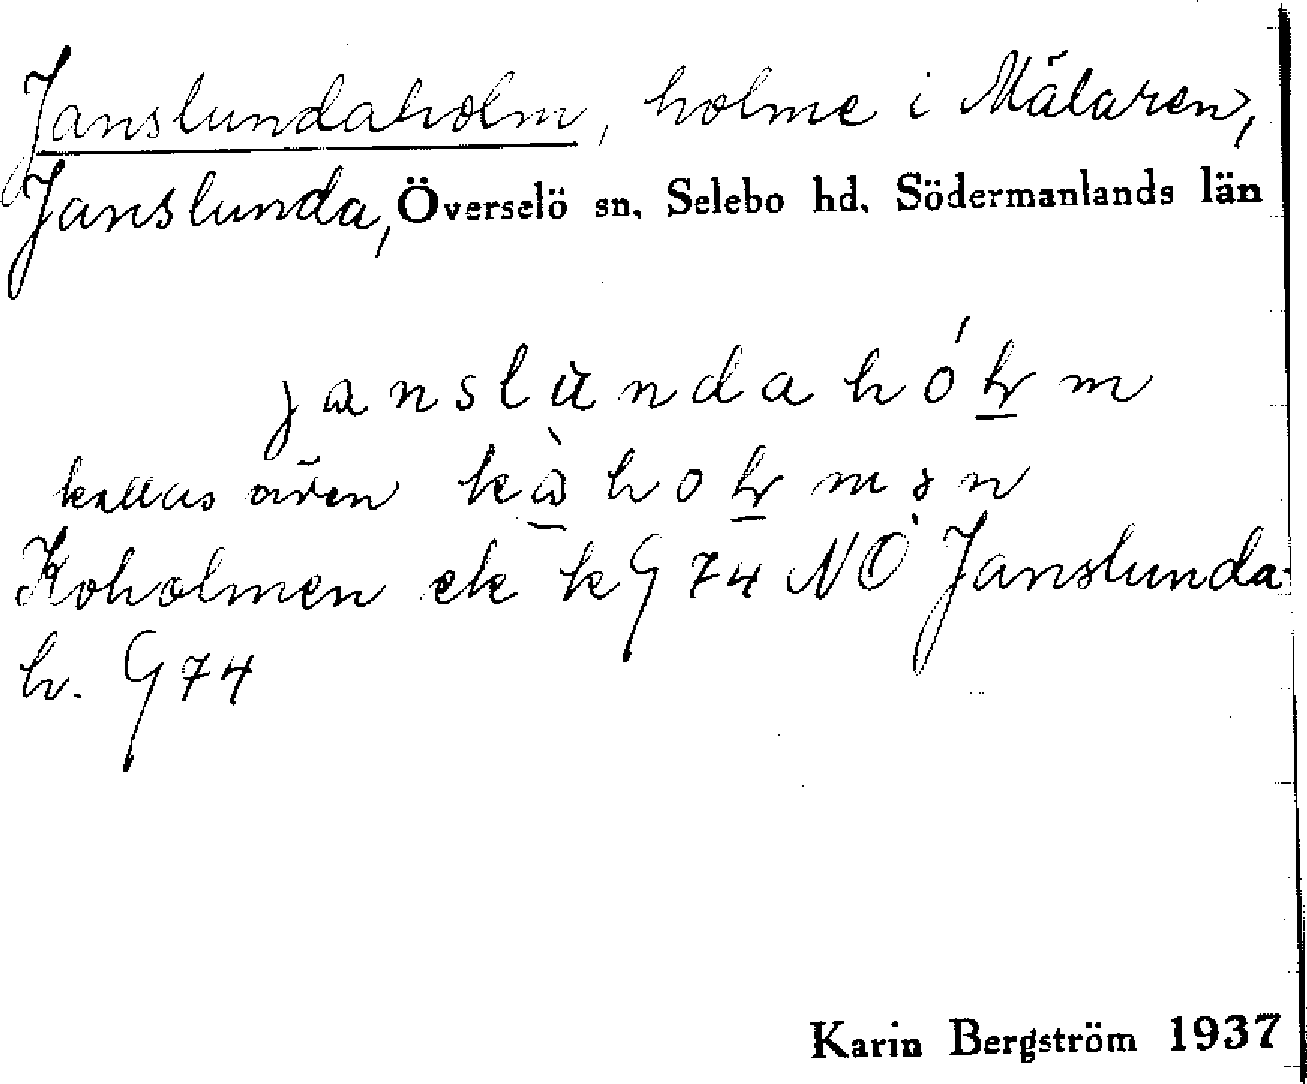 Janslundaholm, holme i Mälaren,
Janslunda, Överselö sn. Selebo hd. Södermanlands län
kallas även
Koholmen ek kG 74 NO Janslunda-
h. G 74
Karin Bergström 1937